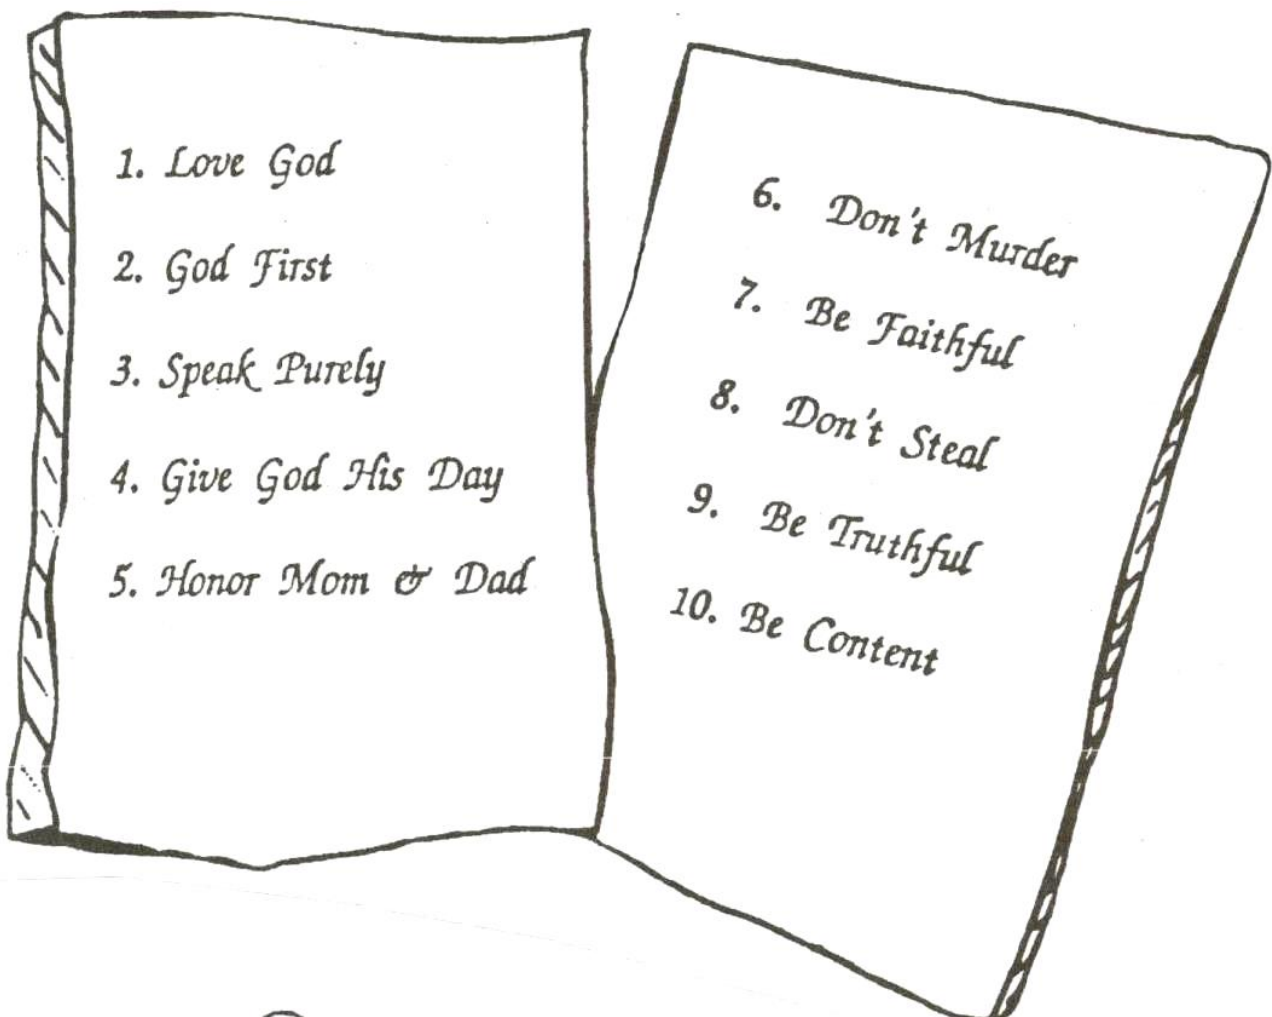 1. Love God
2. God First
3. Speak Purely
4. Give God His Day
5. Honor Mom & Dad
6. Don't Murder
7. Be Faithful
8. Don't Steal
9. Be Truthful
10. Be Content